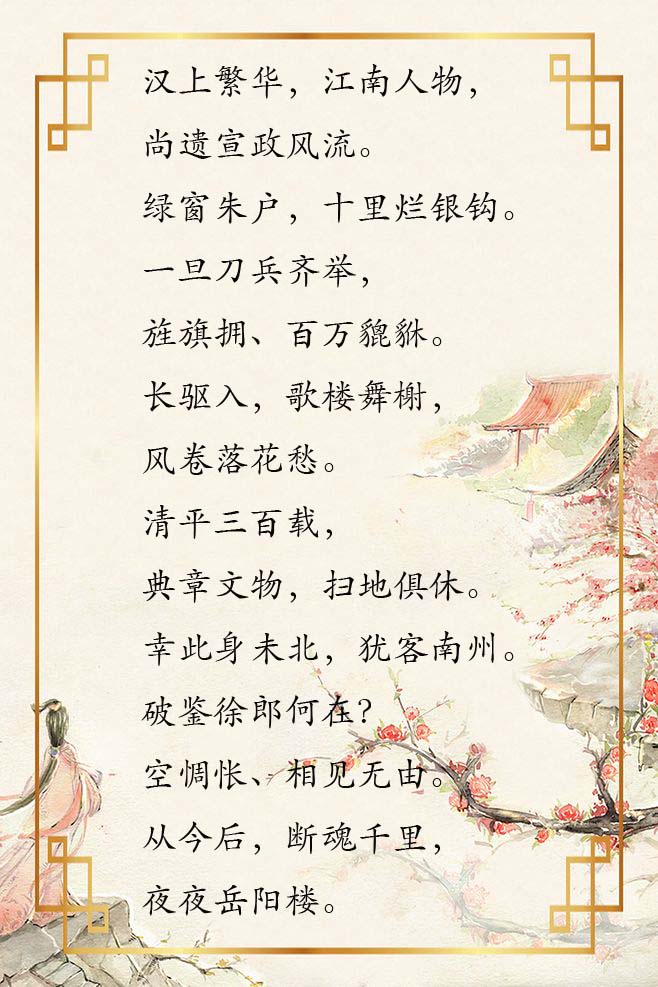 汉上繁华，江南人物，
尚遗宣政风流。
绿窗朱户，十里烂银钩。
一旦刀兵齐举，
旌旗拥、百万貔貅。
长驱入，歌楼舞榭，
风卷落花愁。
清平三百载，
典章文物，扫地俱休。
幸此身未北，犹客南州。
破鉴徐郎何在？
空惆怅、相见无由。
从今后，断魂千里，
夜夜岳阳楼。